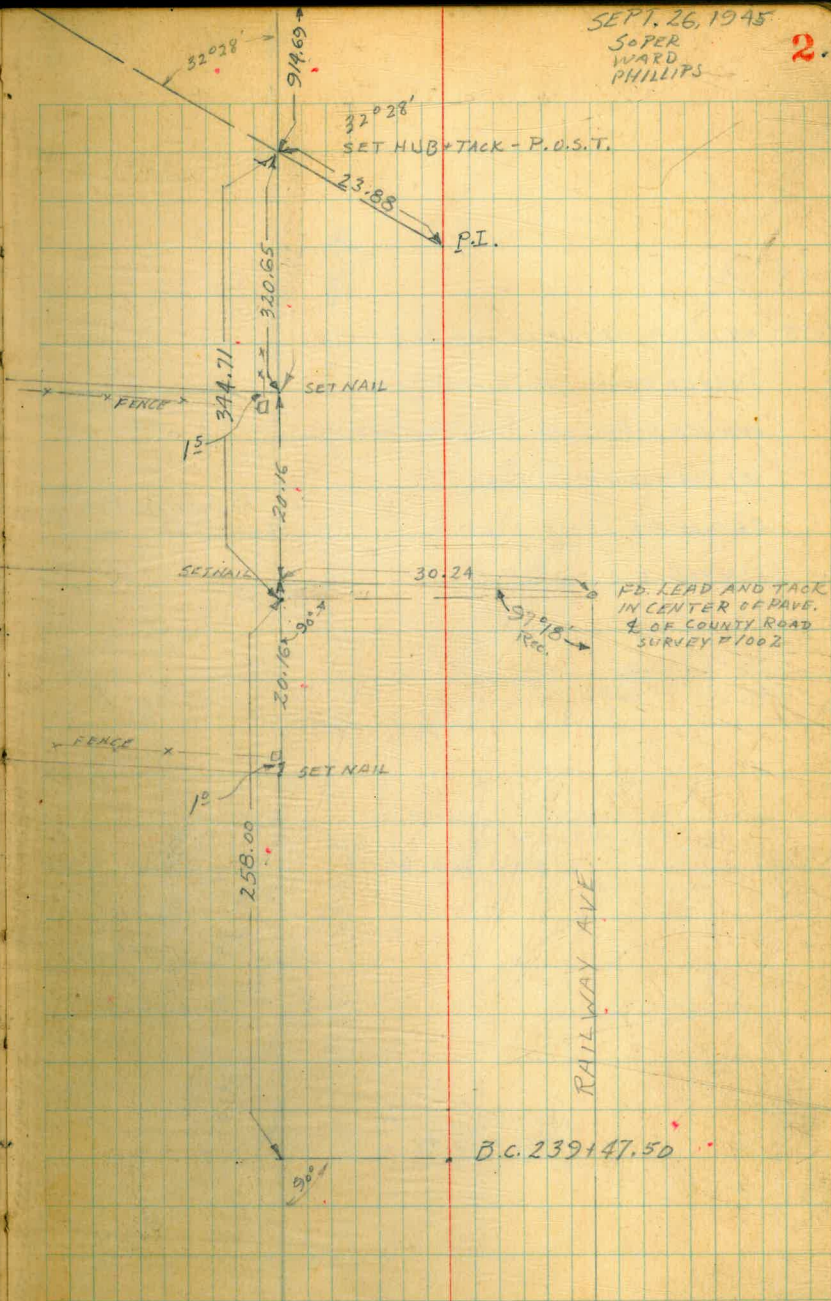 SEPT. 26, 1945
SOPER
WARD
PHILLIPS
2.
32°28'
914.69
32°28'
SET HUB + TACK - P.O.S.T.
23.88
P.I.
320.65
344.71
SET NAIL
FENCE
1⁵
20.16
SET NAIL
30.24
FD. LEAD AND TACK
IN CENTER OF PAVE.
℄ OF COUNTY ROAD
SURVEY #1002
Rec.
90°
20.16
FENCE
SET NAIL
1⁰
258.00
RAILWAY AVE
B.C. 239+47.50
90°